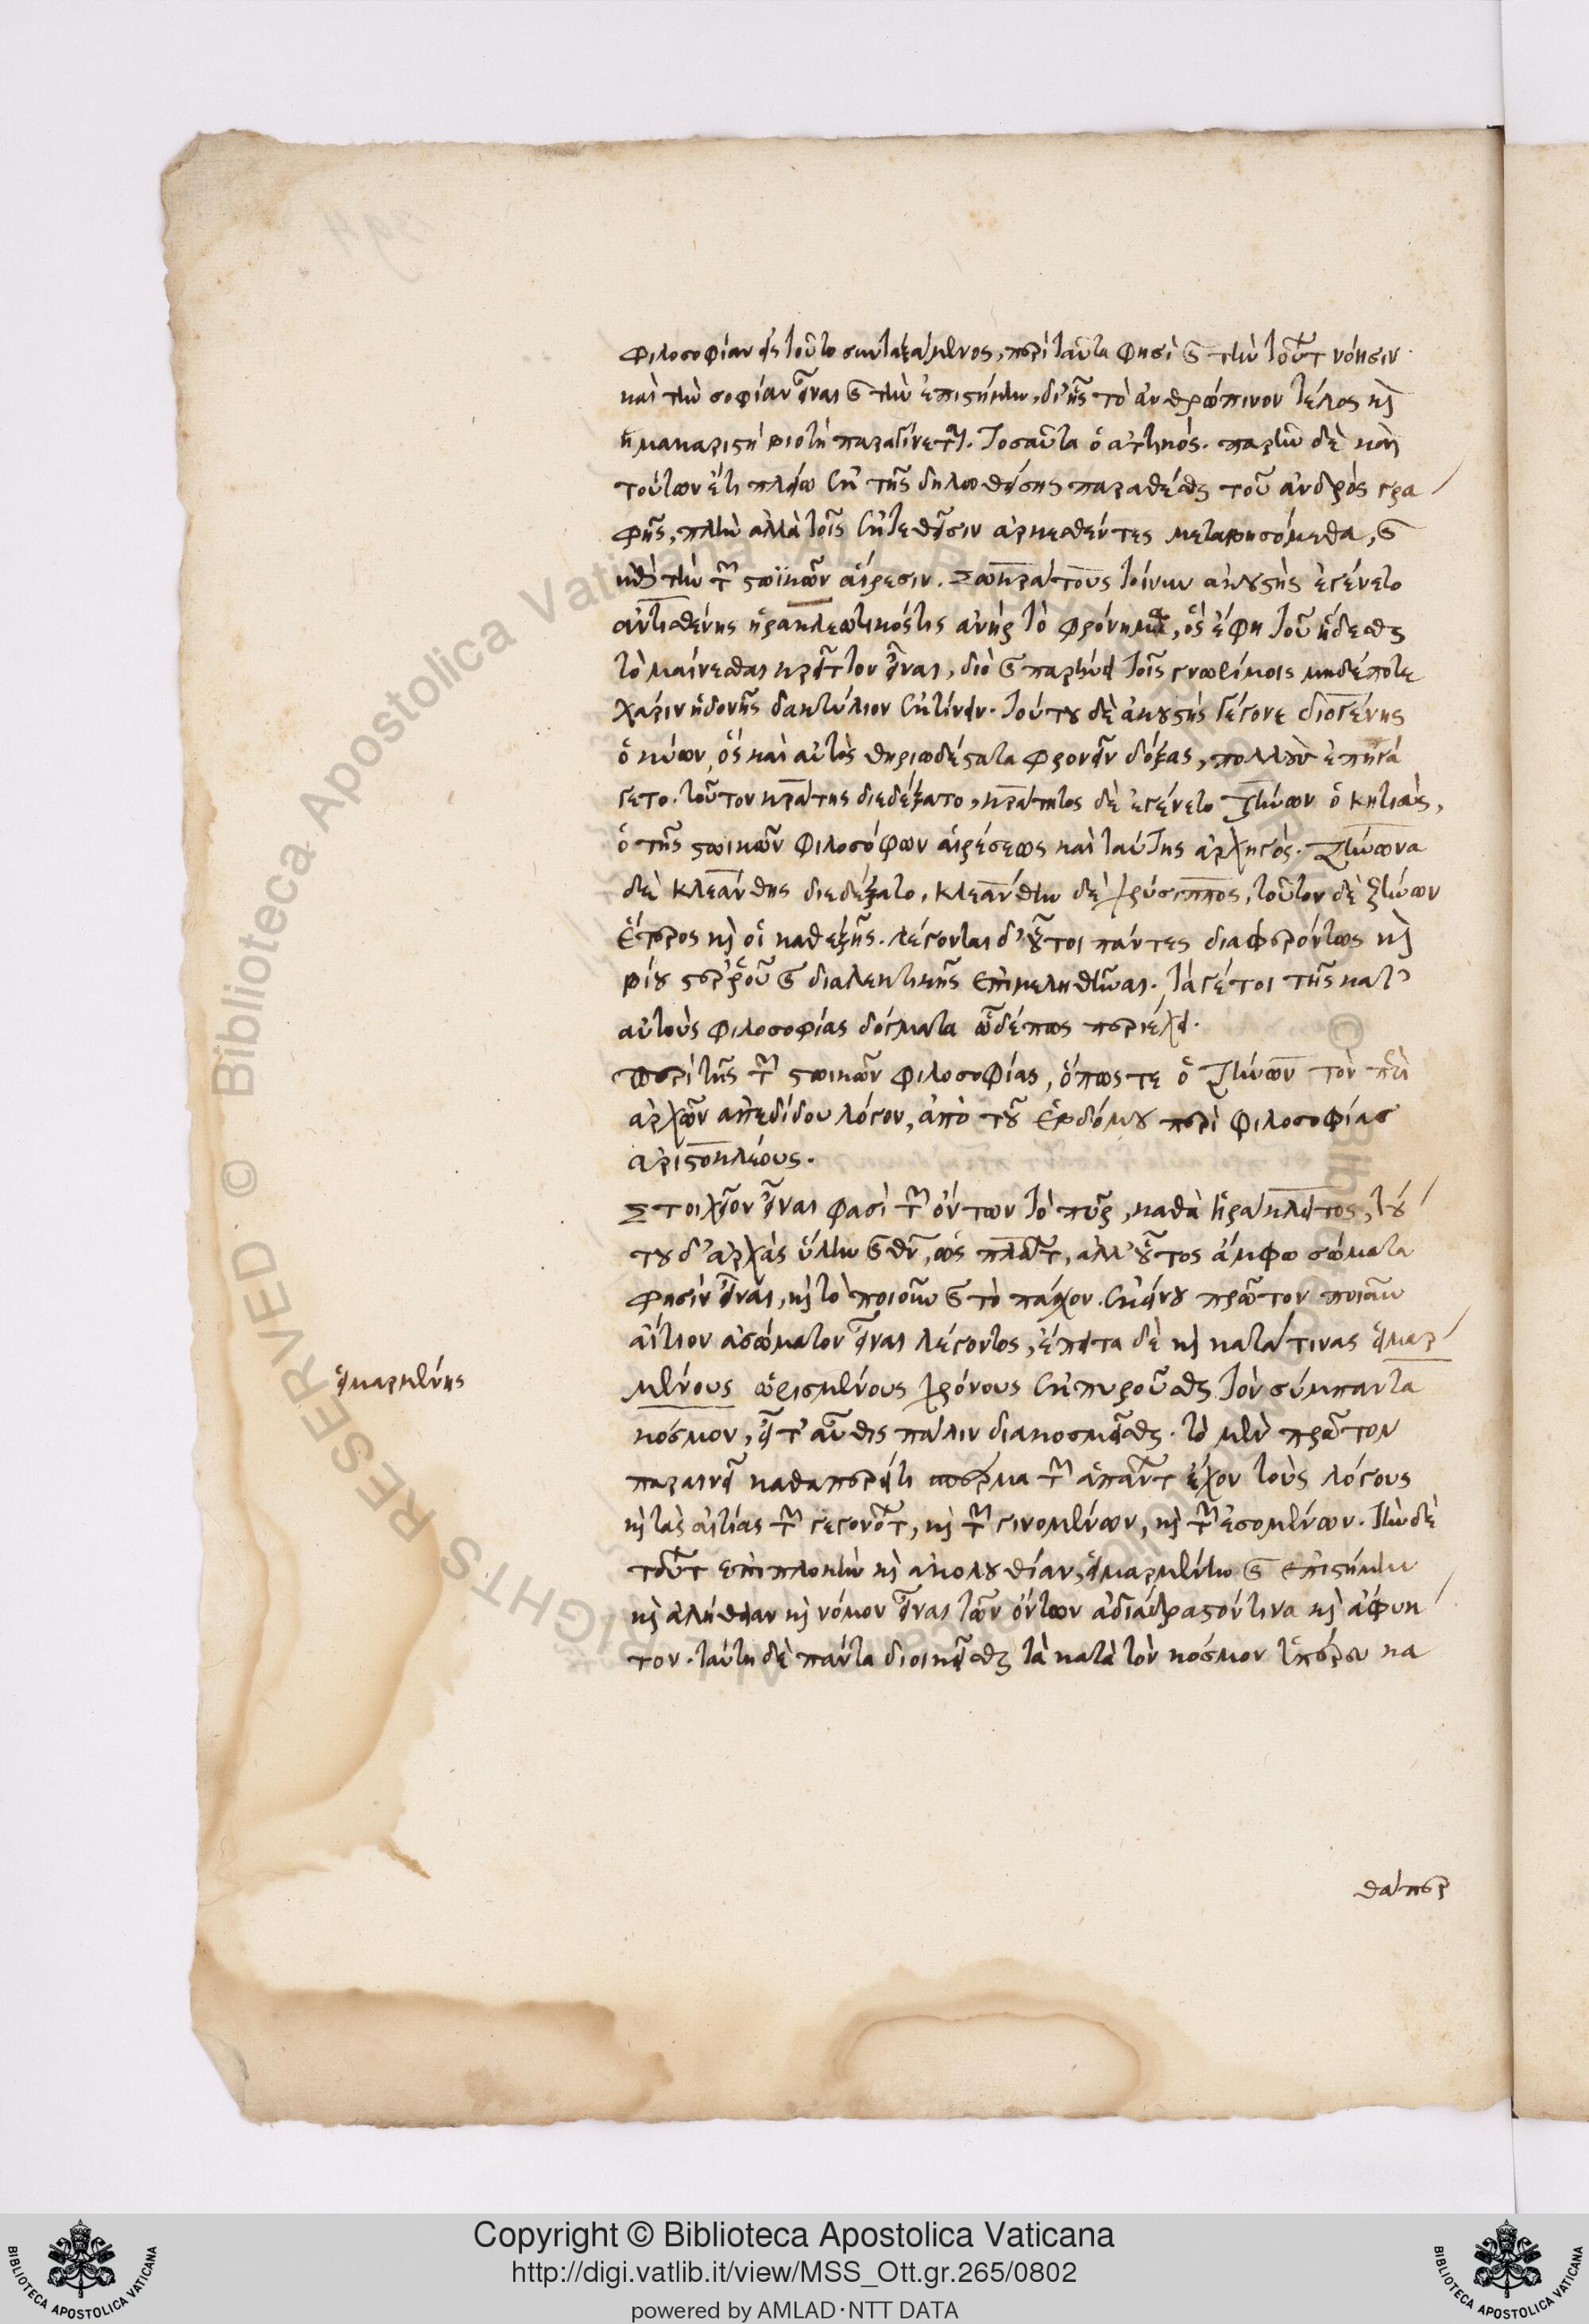 φιλοσοφίαν εἰς τοῦτο συνταξάμενος, περὶ ταῦτά φησι καὶ τὴν τούτων νόησιν
καὶ τὴν σοφίαν εἶναι καὶ τὴν ἐπιστήμην, δι' ἧς τὸ ἀνθρώπινον τέλος καὶ
ἡ μακαριστὴ βιοτὴ παραγίνεται. Τοσαῦτα ὁ ἀττικός. παρῆν δὲ καὶ
τούτων ἔτι πλείω ἐκ τῆς δηλωθείσης παραθέσθαι τοῦ ἀνδρὸς γρα
φῆς, πλὴν ἀλλὰ τοῖς ἐκτεθεῖσιν ἀρκεσθέντες μεταβησόμεθα, καὶ
ἐπὶ τὴν τῶν στωϊκῶν αἵρεσιν. Σωκράτους τοίνυν ἀκουστὴς ἐγένετο
ἀντισθένης ἡρακλεωτικός τις ἀνὴρ τὸ φρόνημα, ὃς ἔφη τοῦ ἥδεσθαι
τὸ μαίνεσθαι κρεῖττον εἶναι, διὸ καὶ παρῄνει τοῖς γνωρίμοις μηδέποτε
χάριν ἡδονῆς δακτύλιον ἐκτείνειν. τούτου δὲ ἀκουστὴς γέγονε διογένης
ὁ κύων, ὃς καὶ αὐτὸς θηριωδέστατα φρονεῖν δόξας, πολλοὺς ἐπηγά
γετο. τοῦτον κράτης διεδέξατο, κράτητος δὲ ἐγένετο ζήνων ὁ κητιεὺς,
ὁ τῆς στωικῶν φιλοσόφων αἱρέσεως καὶ ταύτης ἀρχηγός. ζήνωνα
δὲ κλεάνθης διεδέξατο, κλεάνθην δὲ χρύσιππος, τοῦτον δὲ ζήνων
ἕτερος καὶ οἱ καθεξῆς. λέγονται δ' οὗτοι πάντες διαφερόντως καὶ
βίου στερροῦ καὶ διαλεκτικῆς ἐπιμεληθῆναι. τά γέ τοι τῆς κατ'
αὐτοὺς φιλοσοφίας δόγματα ὧδέ πως περιέχει.
Περὶ τῆς τῶν στωικῶν φιλοσοφίας, ὅπως τε ὁ ζήνων τὸν περὶ
ἀρχῶν ἀπεδίδου λόγον, ἀπὸ τοῦ ἑβδόμου περὶ φιλοσοφίας
ἀριστοκλέους.
Στοιχεῖον εἶναί φασι τῶν ὄντων τὸ πῦρ, καθὰ ἡράκλειτος, τού
του δ' ἀρχὰς ὕλην καὶ θεὸν, ὡς πλάτων, ἀλλ' οὗτος ἄμφω σώματα
φησὶν εἶναι, καὶ τὸ ποιοῦν καὶ τὸ πάσχον. ἐκείνου πρῶτον ποιοῦν
αἴτιον ἀσώματον εἶναι λέγοντος, ἔπειτα δὲ καὶ κατά τινας εἱμαρ
μένους ὡρισμένους χρόνους ἐκπυροῦσθαι τὸν σύμπαντα
κόσμον, εἶτ' αὖθις πάλιν διακοσμεῖσθαι. τὸ μὲν πρῶτον
παραινεῖ καθαπερεί τι σπέρμα τῶν ἁπάντων ἔχον τοὺς λόγους
καὶ τὰς αἰτίας τῶν γεγονότων, καὶ τῶν γινομένων, καὶ τῶν ἐσομένων. τὴν δὲ
τούτων ἐπιπλοκὴν καὶ ἀκολουθίαν, εἱμαρμένην καὶ ἐπιστήμην
καὶ ἀλήθειαν καὶ νόμον εἶναι τῶν ὄντων ἀδιάδραστόν τινα καὶ ἄφυκ
τον. ταύτῃ δὲ πάντα διοικεῖσθαι τὰ κατὰ τὸν κόσμον ὑπέρευ κα
θάπερ
εἱμαρμένης
Copyright © Biblioteca Apostolica Vaticana
http://digi.vatlib.it/view/MSS_Ott.gr.265/0802
powered by AMLAD·NTT DATA